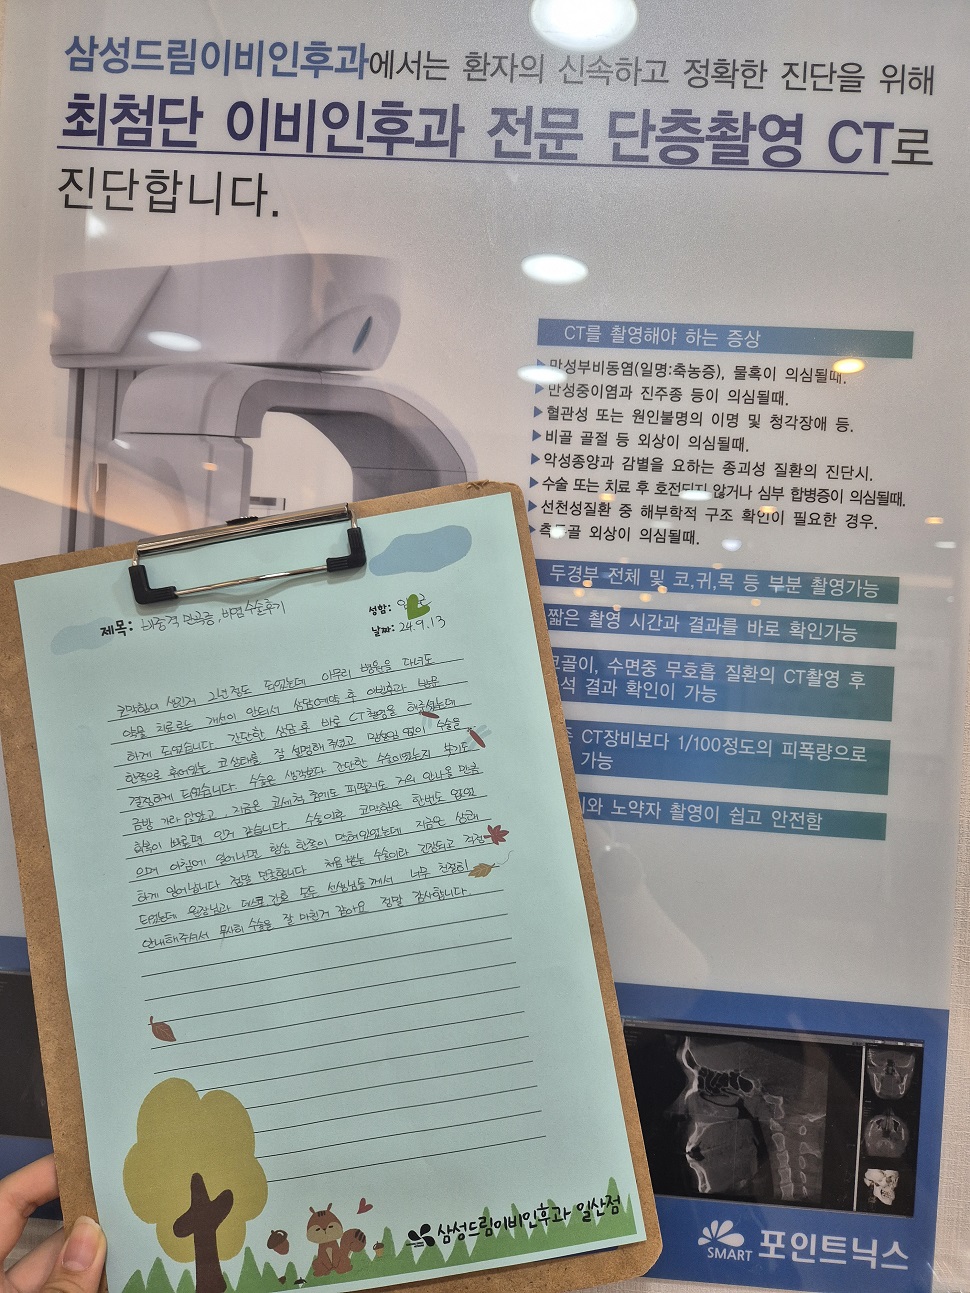 삼성드림이비인후과에서는 환자의 신속하고 정확한 진단을 위해
최첨단 이비인후과 전문 단층촬영 CT로
진단합니다.
CT를 촬영해야 하는 증상
만성부비동염(일명:축농증), 물혹이 의심될때.
만성중이염과 진주종 등이 의심될때.
혈관성 또는 원인불명의 이명 및 청각장애 등.
비골 골절 등 외상이 의심될때.
악성종양과 감별을 요하는 종괴성 질환의 진단시.
수술 또는 치료 후 호전되지 않거나 심부 합병증이 의심될때.
선천성질환 중 해부학적 구조 확인이 필요한 경우.
측두골 외상이 의심될때.
두경부 전체 및 코,귀,목 등 부분 촬영가능
짧은 촬영 시간과 결과를 바로 확인가능
코골이, 수면중 무호흡 질환의 CT촬영 후
결과 확인이 가능
CT장비보다 1/100정도의 피폭량으로
가능
노약자 촬영이 쉽고 안전함
SMART 포인트닉스
제목: 비중격 만곡증, 비염 수술후기
성함:
날짜: 24.9.13
코막힘이 생긴지 2년정도 되었는데 아무리 병원을 다녀도
약물 치료로는 개선이 안돼서 상담예약 후 이비인후과 방문
하게 되었습니다. 간단한 상담 후 바로 CT촬영을 해주셨는데
한쪽으로 휘어있는 코상태를 잘 설명해 주셨고 망설임 없이 수술을
결정하게 되었습니다. 수술은 생각보다 간단한 수술이었는지 붓기도
금방 가라 앉았고, 지금은 코세척 중에도 피딱지도 거의 안나올 만큼
회복이 빠르편 인거 같습니다. 수술이후 코막힘은 한번도 없었
으며 아침에 일어나면 항상 한쪽이 막혀있었는데 지금은 상쾌
하게 일어납니다 정말 만족합니다. 처음 받는 수술이라 긴장되고 걱정
되었는데 원장님과 데스크, 간호 모두 선생님들께서 너무 친절히
안내해주셔서 무사히 수술을 잘 마친거 같아요 정말 감사합니다.
삼성드림이비인후과 일산점